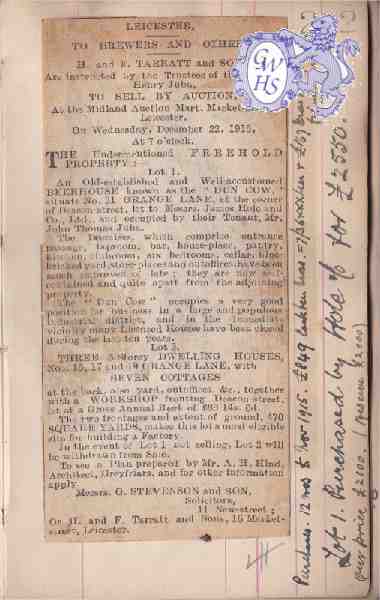 LEICESTER.
TO BREWERS AND OTHERS
H. and F. TARRATT and SO
Are instructed by the Trustees of the
Henry Jobn,
TO SELL BY AUCTION,
At the Midland Auction Mart, Market
Leicester,
On Wednesday, December 22, 1915,
At 7 o'clock.
THE Undermentioned FREEHOLD
PROPERTY:—
Lot 1.
An Old-established and Well-accustomed
BEERHOUSE known as the "DUN COW,"
situate No. 11 GRANGE LANE, at the corner
of Deacon street, let to Messrs. James Hole and
Co., Ltd., and occupied by their Tenant, Mr.
John Thomas John.
The Premises, which comprise entrance
passage, taproom, bar, house-place, pantry,
kitchen, clubroom, six bedrooms, cellar, blue-
bricked yard, store-places and outoffices have been
much improved of late; they are now self-
contained and quite apart from the adjoining
property.
The "Dun Cow" occupies a very good
position for business in a large and populous
industrial district, and in the immediate
vicinity many Licensed Houses have been closed
during the last ten years.
Lot 2.
THREE 3-Storey DWELLING HOUSES,
Nos. 15, 17 and 19 GRANGE LANE, with
SEVEN COTTAGES
at the back, also yard, outoffices, &c., together
with a WORKSHOP fronting Deacon street,
let at a Gross Annual Rent of £93 14s. 0d.
The two frontages and extent of ground, 470
SQUARE YARDS, makes this lot a most eligible
site for building a Factory.
In the event of Lot 1 not selling, Lot 2 will
be withdrawn from Sale.
To see a Plan prepared by Mr. A. H. Hind,
Architect, Greyfriars, and for other information
apply
Messrs. G. STEVENSON and SON,
Solicitors,
11 New-street;
Or H. and F. Tarratt and Sons, 15 Market-
street, Leicester.
GWHS
Purchase. 12 mos 5 Nov 1915. £849
Lot 1. Purchased by Hole & Co for £2550.
Our price £2100. (Reserve £2000)